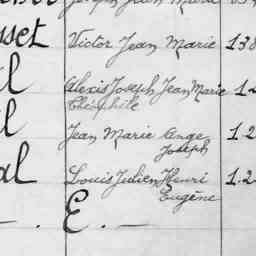 Joseph Jean Marie
sset Victor Jean Marie 1.38
Alexis Joseph Jean Marie 1.2
Théophile
Jean Marie Ange 1.2
Joseph
al Louis Julien Henri 1.2
Eugène
_ . E . _